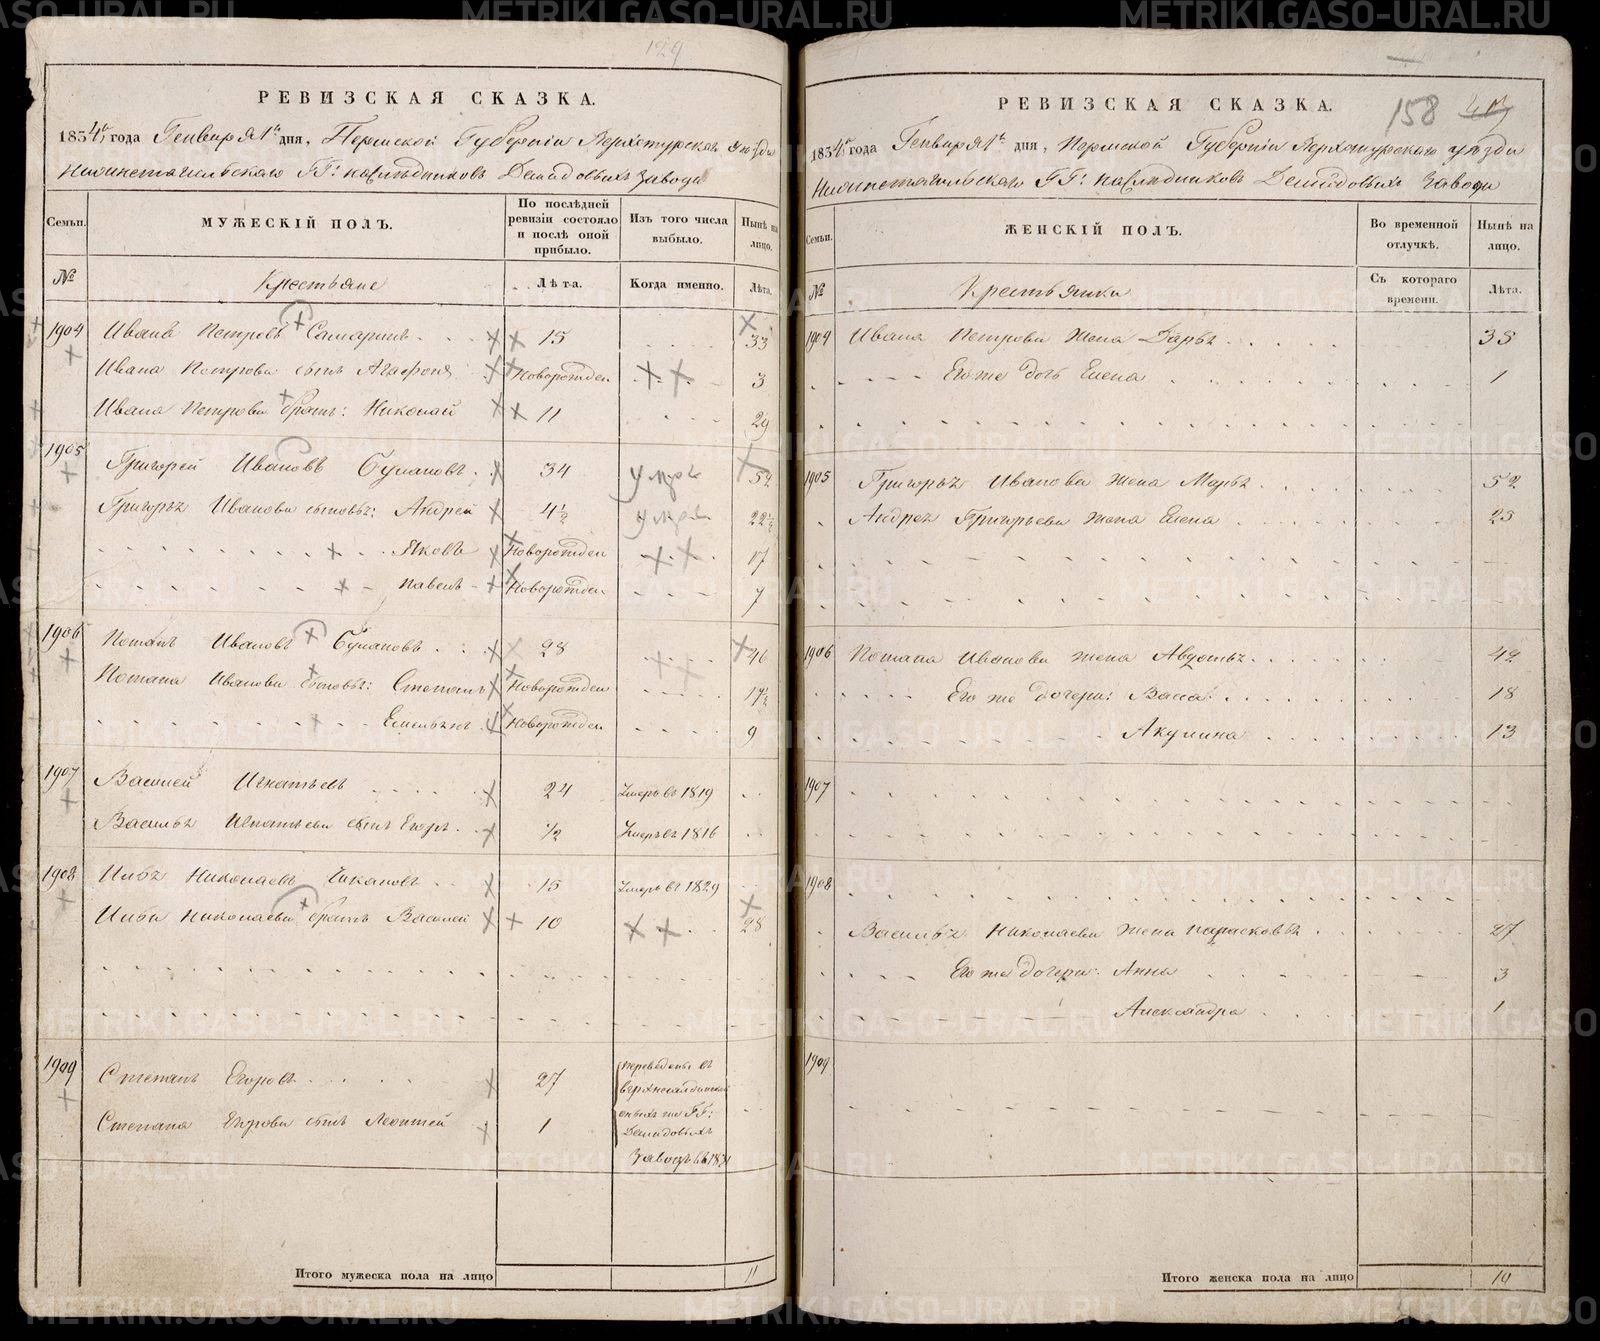 129
РЕВИЗСКАЯ СКАЗКА.
1834 года Генваря 1 дня, Пермской Губерніи Верхотурскаго уезда
Нижнетагильскаго ГГ: наследниковъ Демидовыхъ завода
Семьи.
МУЖЕСКІЙ ПОЛЪ.
По послѣдней ревизіи состояло и послѣ оной прибыло.
Изъ того числа выбыло.
Нынѣ на лицо.
№ Крестьяне Лѣта. Когда именно. Лѣта.
1904 Иванъ Петровъ 15 33
Ивана Петрова сынъ Агафонъ Новорожден 3
Ивана Петрова братъ: Николай 11 29
1905 Григорей Ивановъ 34 умре 52
Григорья Иванова сыновья: Андрей 4½ умре 22½
Яковъ Новорожден 17
Павелъ Новорожден 7
1906 Потапъ Ивановъ 28 46
Потапа Иванова сыновья: Степанъ Новорожден 17½
Емельянъ Новорожден 9
1907 Василей Игнатьевъ 24 Умеръ въ 1819
Василья Игнатьева сынъ Егоръ ½ Умеръ въ 1816
1908 Илья Николаевъ Чикановъ 15 Умеръ въ 1829
Ильи Николаева братъ Василей 10 28
1909 Степанъ Егоровъ 27 переведены въ
оныхъ же ГГ:
Степана Егорова сынъ Леонтей 1 Демидовыхъ
заводъ въ 1831
Итого мужеска пола на лицо 11
158
РЕВИЗСКАЯ СКАЗКА.
1834 года Генваря 1 дня, Пермской Губерніи Верхотурскаго уезда
Нижнетагильскаго ГГ: наследниковъ Демидовыхъ завода
Семьи.
ЖЕНСКІЙ ПОЛЪ.
Во временной отлучкѣ.
Нынѣ на лицо.
№ Крестьянки Съ котораго времени. Лѣта.
1904 Ивана Петрова жена Дарья 35
Его же дочь Елена 1
1905 Григорья Иванова жена Марья 52
Андрея Григорьева жена Елена 23
1906 Потапа Иванова жена Авдотья 42
Его же дочери: Васса 18
Акулина 13
1907
1908
Василья Николаева жена Парасковья 27
Его же дочери: Анна 3
Александра 1
1909
Итого женска пола на лицо 10
METRIKI.GASO-URAL.RU